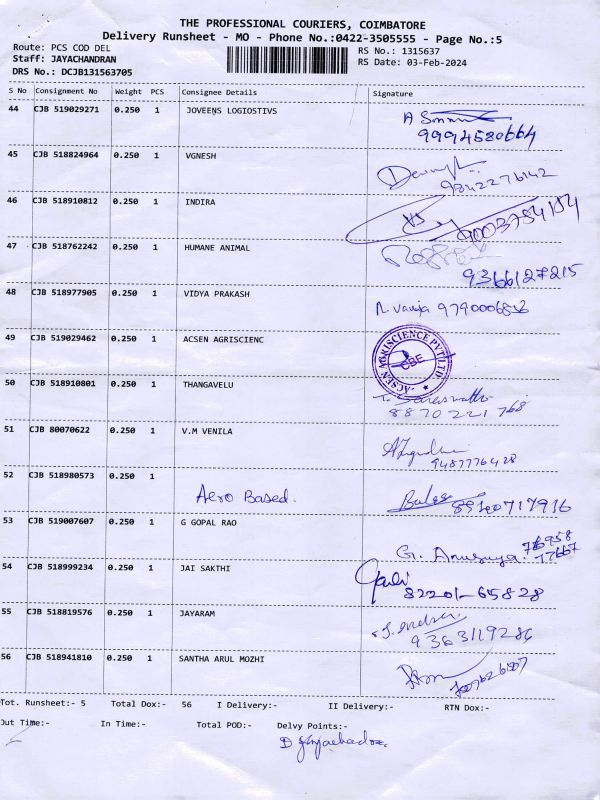 THE PROFESSIONAL COURIERS, COIMBATORE
Delivery Runsheet - MO - Phone No.:0422-3505555 - Page No.:5
Route: PCS COD DEL
Staff: JAYACHANDRAN
DRS No.: DCJB131563705
RS No.: 1315637
RS Date: 03-Feb-2024
S No Consignment No Weight PCS Consignee Details Signature
44 CJB 519029271 0.250 1 JOVEENS LOGIOSTIVS
9994580664
45 CJB 518824964 0.250 1 VGNESH
9842276142
46 CJB 518910812 0.250 1 INDIRA
9003754154
47 CJB 518762242 0.250 1 HUMANE ANIMAL
9366127215
48 CJB 518977905 0.250 1 VIDYA PRAKASH
9790006856
49 CJB 519029462 0.250 1 ACSEN AGRISCIENC
ACSEN AGRISCIENCE PVT LTD CBE
50 CJB 518910801 0.250 1 THANGAVELU
T. Saraswathi
8870221768
51 CJB 80070622 0.250 1 V.M VENILA
9487776428
52 CJB 518980573 0.250 1 Aero Based.
53 CJB 519007607 0.250 1 G GOPAL RAO
G. Anusuya 76958
77667
54 CJB 518999234 0.250 1 JAI SAKTHI
82201-65828
55 CJB 518819576 0.250 1 JAYARAM
9363119286
56 CJB 518941810 0.250 1 SANTHA ARUL MOZHI
Tot. Runsheet:- 5 Total Dox:- 56 I Delivery:- II Delivery:- RTN Dox:-
Out Time:- In Time:- Total POD:- Delvy Points:-